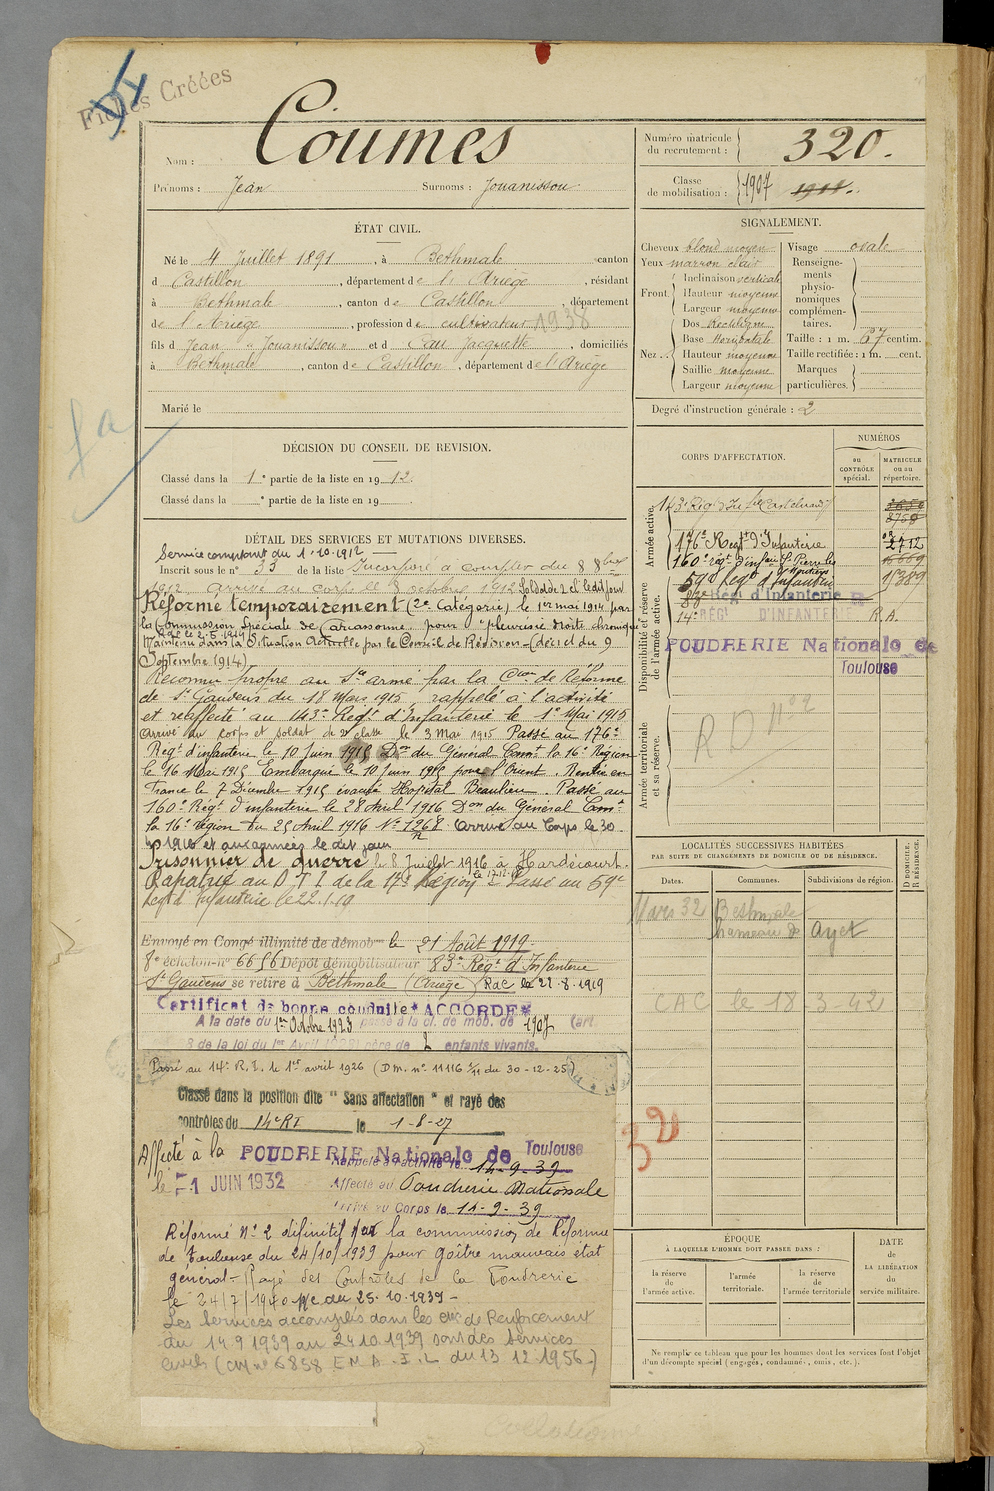 Fiches Créées
Nom : Coumes
Prénoms : Jean Surnoms : Jouanissou
Numéro matricule du recrutement : 320.
Classe de mobilisation : 1907
ÉTAT CIVIL.
Né le 4 Juillet 1891, à Bethmale canton
d Castillon, département de l'Ariège, résidant
à Bethmale, canton de Castillon, département
de l'Ariège, profession de cultivateur 1938
fils d Jean "Jouanissou" et d Jacquette, domiciliés
à Bethmale, canton de Castillon, département de l'Ariège
Marié le
SIGNALEMENT.
Cheveux blond moyen
Yeux marron clair
Front. Inclinaison verticale
Hauteur moyenne
Largeur moyenne
Nez. Dos Rectiligne
Base Horizontale
Hauteur moyenne
Saillie moyenne
Largeur moyenne
Visage ovale
Renseignements physionomiques complémentaires.
Taille : 1 m. 67 centim.
Taille rectifiée : 1 m. cent.
Marques particulières.
Degré d'instruction générale : 2
DÉCISION DU CONSEIL DE REVISION.
Classé dans la 1e partie de la liste en 1912.
Classé dans la e partie de la liste en 19
DÉTAIL DES SERVICES ET MUTATIONS DIVERSES.
Service comptant du 1.10.1912
Inscrit sous le n° 33 de la liste Incorporé à compter du 8 8bre
1912 arrivé au corps le 8 octobre 1912 Soldat de 2e cl. le dit jour
Réforme temporairement (2e Catégorie) le 1er mai 1914 par
la Commission Spéciale de Carcassonne pour "pleurésie droite chronique"
Maintenu dans la Situation Actuelle par le Conseil de Révision (décret du 9
Septembre 1914)
Reconnu propre au Sce armé par la Cion de Réforme
de St Gaudens du 18 Mars 1915 rappelé à l'activité
et réaffecté au 143e Regt d'Infanterie le 1er Mai 1915
Arrivé au corps et soldat de 2e classe le 3 Mai 1915 Passé au 176e
Regt d'infanterie le 10 Juin 1915 Don du Général Comt la 16e Région
le 16 Mai 1915 Embarqué le 10 Juin 1915 pour l'Orient. Rentré en
France le 7 Décembre 1915 évacué Hôpital Beaulieu. Passé au
160e Regt d'infanterie le 28 Avril 1916 Don du Général Comt
la 16e région du 25 Avril 1916 N° 1268 Arrivé au Corps le 30
1916 et aux armées le dit jour
Prisonnier de guerre le 8 Juillet 1916 à Hardécourt.
Rapatrié au D T I de la 17e Région Passé au 59e
Regt d'Infanterie le 22.1.19
Envoyé en Congé illimité de démobon le 21 Août 1919.
8e échelon n° 6656 Dépôt démobilisateur 83e Régt d'Infanterie
St Gaudens se retire à Bethmale (Ariège) Rac le 22.8.1919
Certificat de bonne conduite "ACCORDÉ"
A la date du 1er Octobre 1923 passé à la cl. de mob. de 1907 (art.
8 de la loi du 1er Avril 1923) père de 2 enfants vivants.
Passé au 14e R.I. le 1er avril 1926 (D.M. n° 11116 1/11 du 30-12-25)
Classé dans la position dite "Sans affectation" et rayé des
contrôles du 14e RI le 1-8-27
Affecté à la POUDRERIE Nationale de Toulouse
le 1 JUIN 1932
Rappelé à l'activité le 14-9-39
Affecté au Poudrerie Nationale
Arrivé au Corps le 14-9-39
Réformé N° 2 définitif par la commission de Réforme
de Toulouse du 24/10/1939 pour goître mauvais état
général - Rayé des Contrôles de la Poudrerie
le 24/7/1940 pc du 25.10.1939 -
Les services accomplis dans les de Renforcement
du 14.9.1939 au 24.10.1939 sont des services
civils (CM n° 6858 E.M.A. I. L du 13.12.1956.)
CORPS D'AFFECTATION.
NUMÉROS
au CONTRÔLE spécial.
MATRICULE ou au répertoire.
Armée active.
143e Régt d'Inf. Castelnaudary
8750
176e Regt d'Infanterie 2712
160e régt d'inf.
59e Regt d'Infanterie 1389
Disponibilité et réserve de l'armée active.
83e Régt d'Infanterie R
14e RÉGt D'INFANTERIE R.A.
POUDRERIE Nationale de
Toulouse
Armée territoriale et sa réserve.
R D n° 2
LOCALITÉS SUCCESSIVES HABITÉES
PAR SUITE DE CHANGEMENTS DE DOMICILE OU DE RÉSIDENCE.
Dates. Communes. Subdivisions de région. D DOMICILE. R RÉSIDENCE.
Mars 32 Bethmale
hameau de Ayet
CAC le 18-3-42
32
ÉPOQUE
À LAQUELLE L'HOMME DOIT PASSER DANS :
la réserve de l'armée active.
l'armée territoriale.
la réserve de l'armée territoriale
DATE de LA LIBÉRATION du service militaire.
Ne remplir ce tableau que pour les hommes dont les services font l'objet
d'un décompte spécial (engagés, condamnés, omis, etc.).